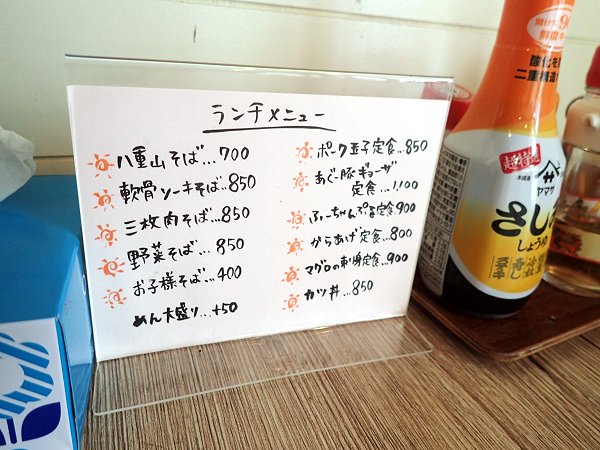 ランチメニュー
八重山そば...700
軟骨ソーキそば...850
三枚肉そば...850
野菜そば...850
お子様そば...400
めん大盛り...+50
ポーク玉子定食...850
あぐー豚ギョーザ
定食...1,100
ふーちゃんぷる定食900
からあげ定食...800
マグロの刺身定食...900
カツ丼...850
開けて
鮮度キ
酸化を
二重構造
超特選
ヤマサ
さしみ
しょうゆ